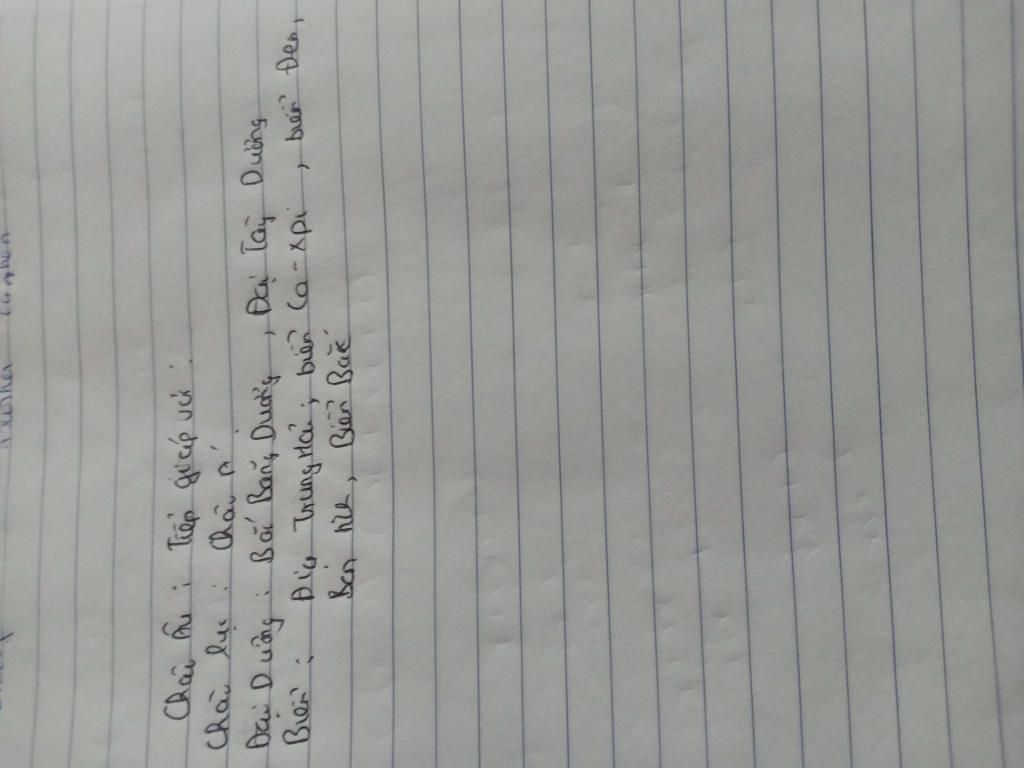 Châu Âu : Tiếp giáp với :
Châu lục : Châu Á
Đại Dương : Bắc Băng Dương , Đại Tây Dương
Biển : Địa Trung Hải ; biển Ca-xpi , biển Đen,
Biển Bắc